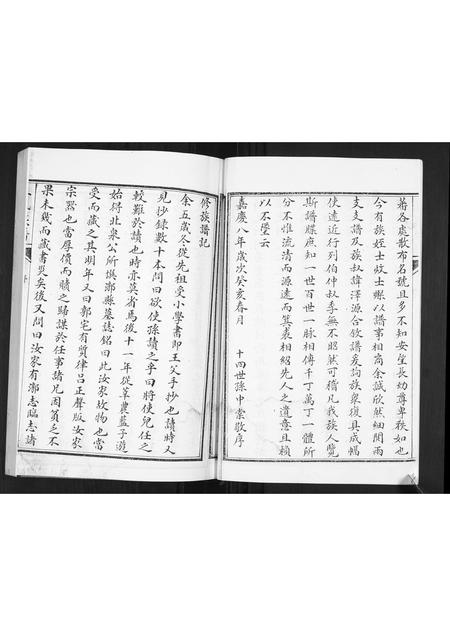 若各處散布名號且多不知安望長幼尊卑秩如也
今有族姪士炆士㸁以譜事相商余誠欣然細閱雨
支支譜及族叔諱澤源合敘譜爰詢族衆後具成幅
使遠近行列伯仲叔季無不昭然可稽凡我族人覽
斯譜牒庶知一世百世一脈相傳千丁萬丁一體所
分不惟流清而源遠而箕裘相紹先人之遺意且賴
以不墜云
嘉慶八年歲次癸亥春月　十四世孫中崇敬序
修族譜記
余五歲冬從先祖受小學書即王父手抄也讀時又
見抄錄數十本問曰欲使孫讀之乎曰將使兒任之
較難於讀也時亦莫省焉後十一年從草農藍子遊
始得北泉公所撰鄉縣墓誌銘曰此汝家故物也當
受而藏之其明年又曰郭宅有質律呂正聲版汝家
宗器也當厚價而贖之賠謀於任事諸兄困貧乏不
果未幾而藏書災矣後又問曰汝家有鄉志臨志諸